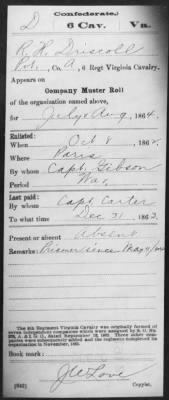 Confederate.
D 6 Cav. Va.
R. H. Driscoll
Pvt., Co. A, 6 Regt Virginia Cavalry.
Appears on
Company Muster Roll
of the organization named above,
for July & Aug, 1864.
Enlisted:
When Oct 8, 1862.
Where Paris
By whom Capt. Gibson
Period War
Last paid:
By whom Capt. Carter
To what time Dec 31, 1863.
Present or absent Absent
Remarks: Prisoner since May
The 6th Regiment Virginia Cavalry was originally formed of
seven independent companies which were assigned by S. O. No.
, A. & I. G. O., dated September 1861. Three other com-
panies were subsequently added and the regiment completed its
organization in November, 1861.
Book mark:
J W Love
(642) Copyist.